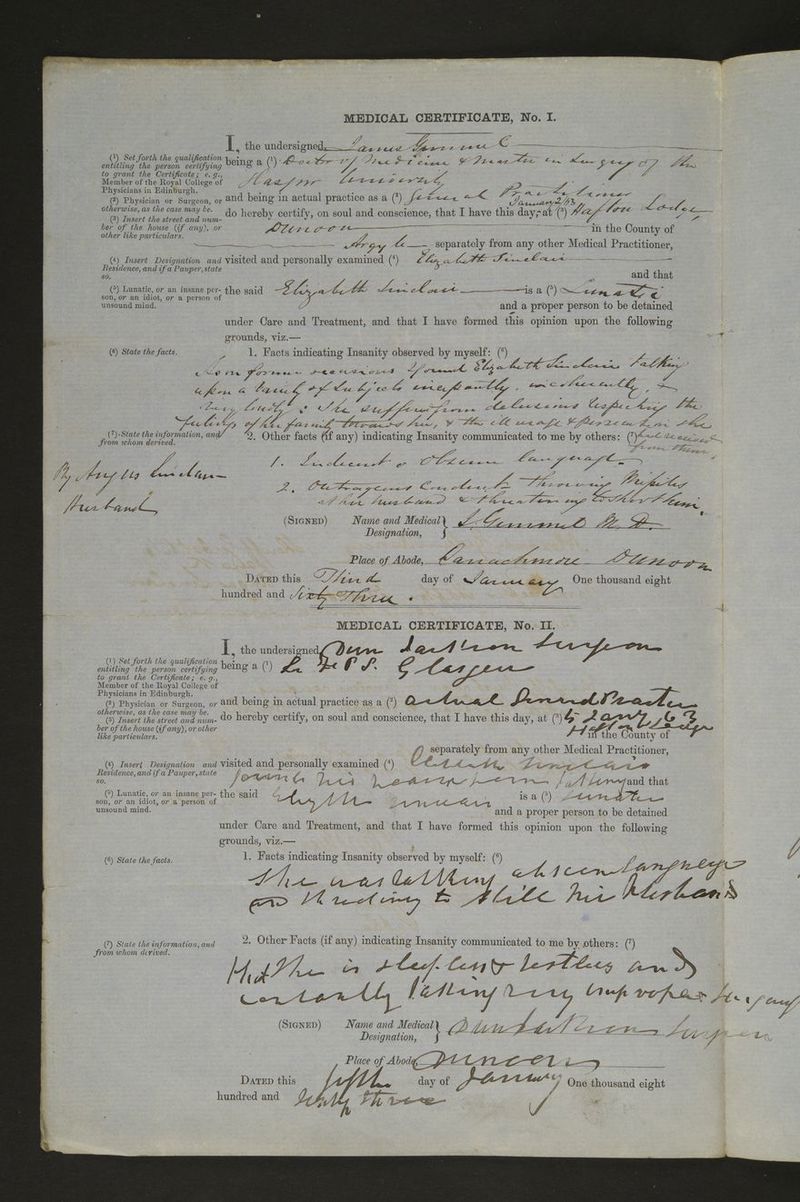 MEDICAL CERTIFICATE, No. I.
I, the undersigned, James Gemmel
(¹) Set forth the qualification entitling the person certifying to grant the Certificate; e. g., Member of the Royal College of Physicians in Edinburgh.
being a (¹) Doctor of Medicine & Master in Surgery of the
Glasgow University
(²) Physician or Surgeon, or otherwise, as the case may be.
and being in actual practice as a (²) General Practitioner
(³) Insert the street and number of the house (if any), or other like particulars.
January 2/63
do hereby certify, on soul and conscience, that I have this day, at (³) Hafton Lodge,
Dunoon in the County of
Argyle separately from any other Medical Practitioner,
(⁴) Insert Designation and Residence, and if a Pauper, state so.
visited and personally examined (⁴) Elizabeth Sinclair
and that
(⁵) Lunatic, or an insane person, or an idiot, or a person of unsound mind.
the said Elizabeth Sinclair is a (⁵) Lunatic
and a proper person to be detained
under Care and Treatment, and that I have formed this opinion upon the following
grounds, viz.—
(⁶) State the facts.
1. Facts indicating Insanity observed by myself: (⁶)
on former occasions I found Elizabeth Sinclair talking
upon a variety of subjects incessantly, incoherently, &
very loudly: She suffers from delusions respecting the
feelings of her family towards her, & the ill usage & persecution she
(⁷) State the information, and from whom derived.
2. Other facts (if any) indicating Insanity communicated to me by others: (⁷) had received
from them.
By Angus Sinclair
Husband
1. Indecent & Obscene language
2. Outrageous Conduct, throwing Missiles
at her husband & threatening to
(SIGNED) Name and Medical Designation, J. Gemmel M.D.
Place of Abode, Dunoon
DATED this Third day of January One thousand eight
hundred and Sixty Three.
MEDICAL CERTIFICATE, No. II.
I, the undersigned, Surgeon
(¹) Set forth the qualification entitling the person certifying to grant the Certificate; e. g., Member of the Royal College of Physicians in Edinburgh.
being a (¹) Glasgow
(²) Physician or Surgeon, or otherwise, as the case may be.
and being in actual practice as a (²) actual
(³) Insert the street and number of the house (if any), or other like particulars.
do hereby certify, on soul and conscience, that I have this day, at (³) 5 Jany 63
Hafton Lodge
in the County of
separately from any other Medical Practitioner,
(⁴) Insert Designation and Residence, and if a Pauper, state so.
visited and personally examined (⁴) Sinclair
and that
(⁵) Lunatic, or an insane person, or an idiot, or a person of unsound mind.
the said Sinclair is a (⁵) Lunatic
and a proper person to be detained
under Care and Treatment, and that I have formed this opinion upon the following
grounds, viz.—
(⁶) State the facts.
1. Facts indicating Insanity observed by myself: (⁶)
She was talking language
to kill her Husband
(⁷) State the information, and from whom derived.
2. Other Facts (if any) indicating Insanity communicated to me by others: (⁷)
that she is sleepless restless and
constantly talking very improper
(SIGNED) Name and Medical Designation, Surgeon
Place of Abode, Dunoon
DATED this fifth day of January One thousand eight
hundred and Sixty three